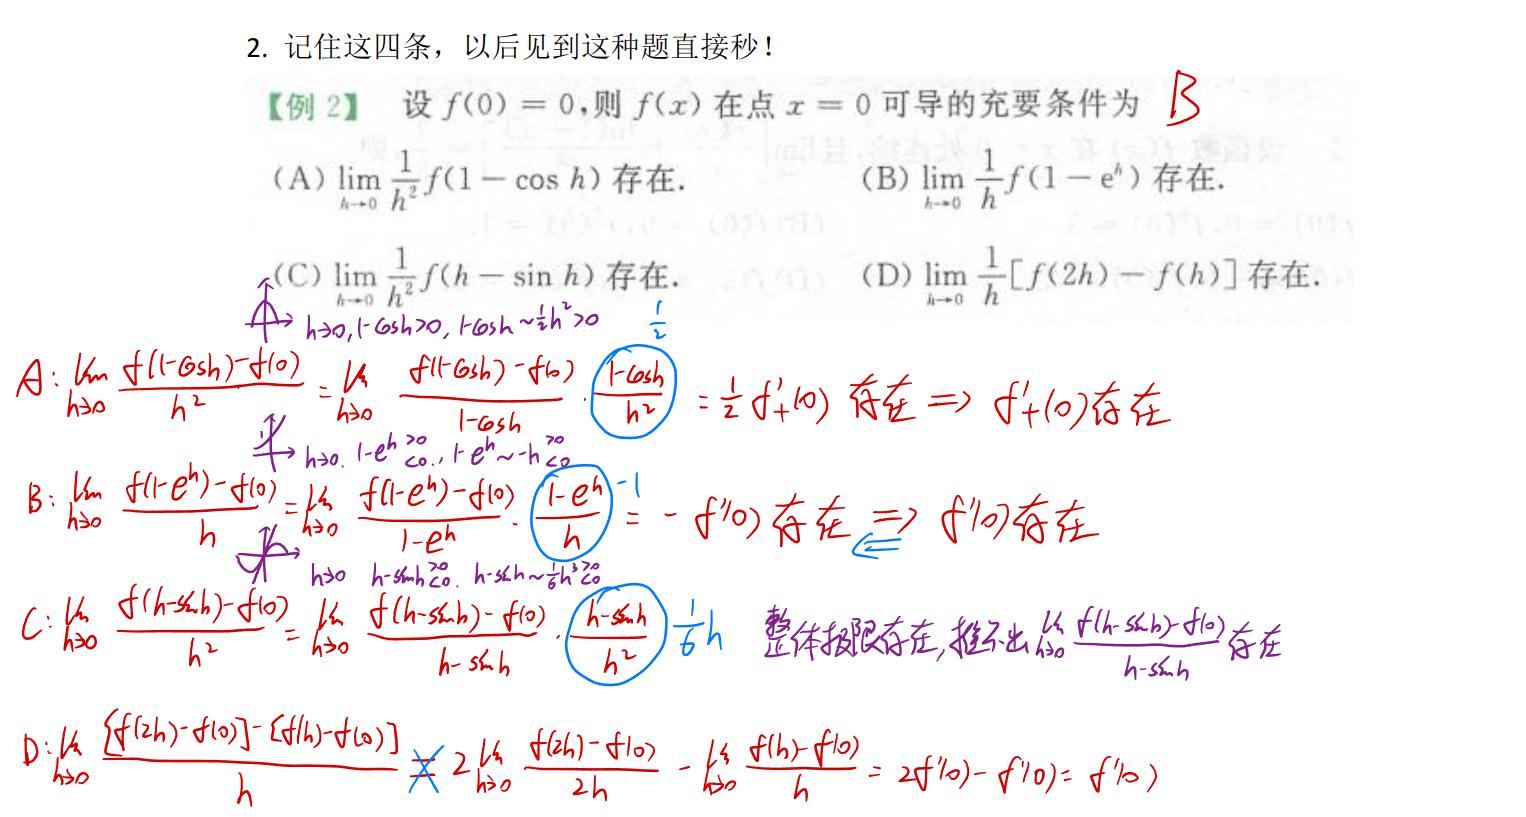 2. 记住这四条，以后见到这种题直接秒！
【例 2】 设 f(0) = 0,则 f(x) 在点 x = 0 可导的充要条件为 B
(A) lim_{h→0} \frac{1}{h²} f(1 − cos h) 存在. (B) lim_{h→0} \frac{1}{h} f(1 − e^h) 存在.
(C) lim_{h→0} \frac{1}{h²} f(h − sin h) 存在. (D) lim_{h→0} \frac{1}{h} [f(2h) − f(h)] 存在.
h→0, 1-cosh>0, 1-cosh ~ \frac{1}{2}h² >0 \frac{1}{2}
A: lim_{h→0} \frac{f(1-cosh)-f(0)}{h²} = lim_{h→0} \frac{f(1-cosh)-f(0)}{1-cosh} · \frac{1-cosh}{h²} = \frac{1}{2} f'₊(0) 存在 => f'₊(0) 存在
h→0. 1-e^h >0 <0., 1-e^h ~ -h >0 <0
B: lim_{h→0} \frac{f(1-e^h)-f(0)}{h} = lim_{h→0} \frac{f(1-e^h)-f(0)}{1-e^h} · \frac{1-e^h}{h} -1 = - f'(0) 存在 => <= f'(0) 存在
h→0 h-sinh >0 <0. h-sinh ~ \frac{1}{6}h³ >0 <0
C: lim_{h→0} \frac{f(h-sinh)-f(0)}{h²} = lim_{h→0} \frac{f(h-sinh)-f(0)}{h-sinh} · \frac{h-sinh}{h²} \frac{1}{6}h 整体极限存在, 推不出 lim_{h→0} \frac{f(h-sinh)-f(0)}{h-sinh} 存在
D: lim_{h→0} \frac{[f(2h)-f(0)]-[f(h)-f(0)]}{h} = 2 lim_{h→0} \frac{f(2h)-f(0)}{2h} - lim_{h→0} \frac{f(h)-f(0)}{h} = 2f'(0) - f'(0) = f'(0)